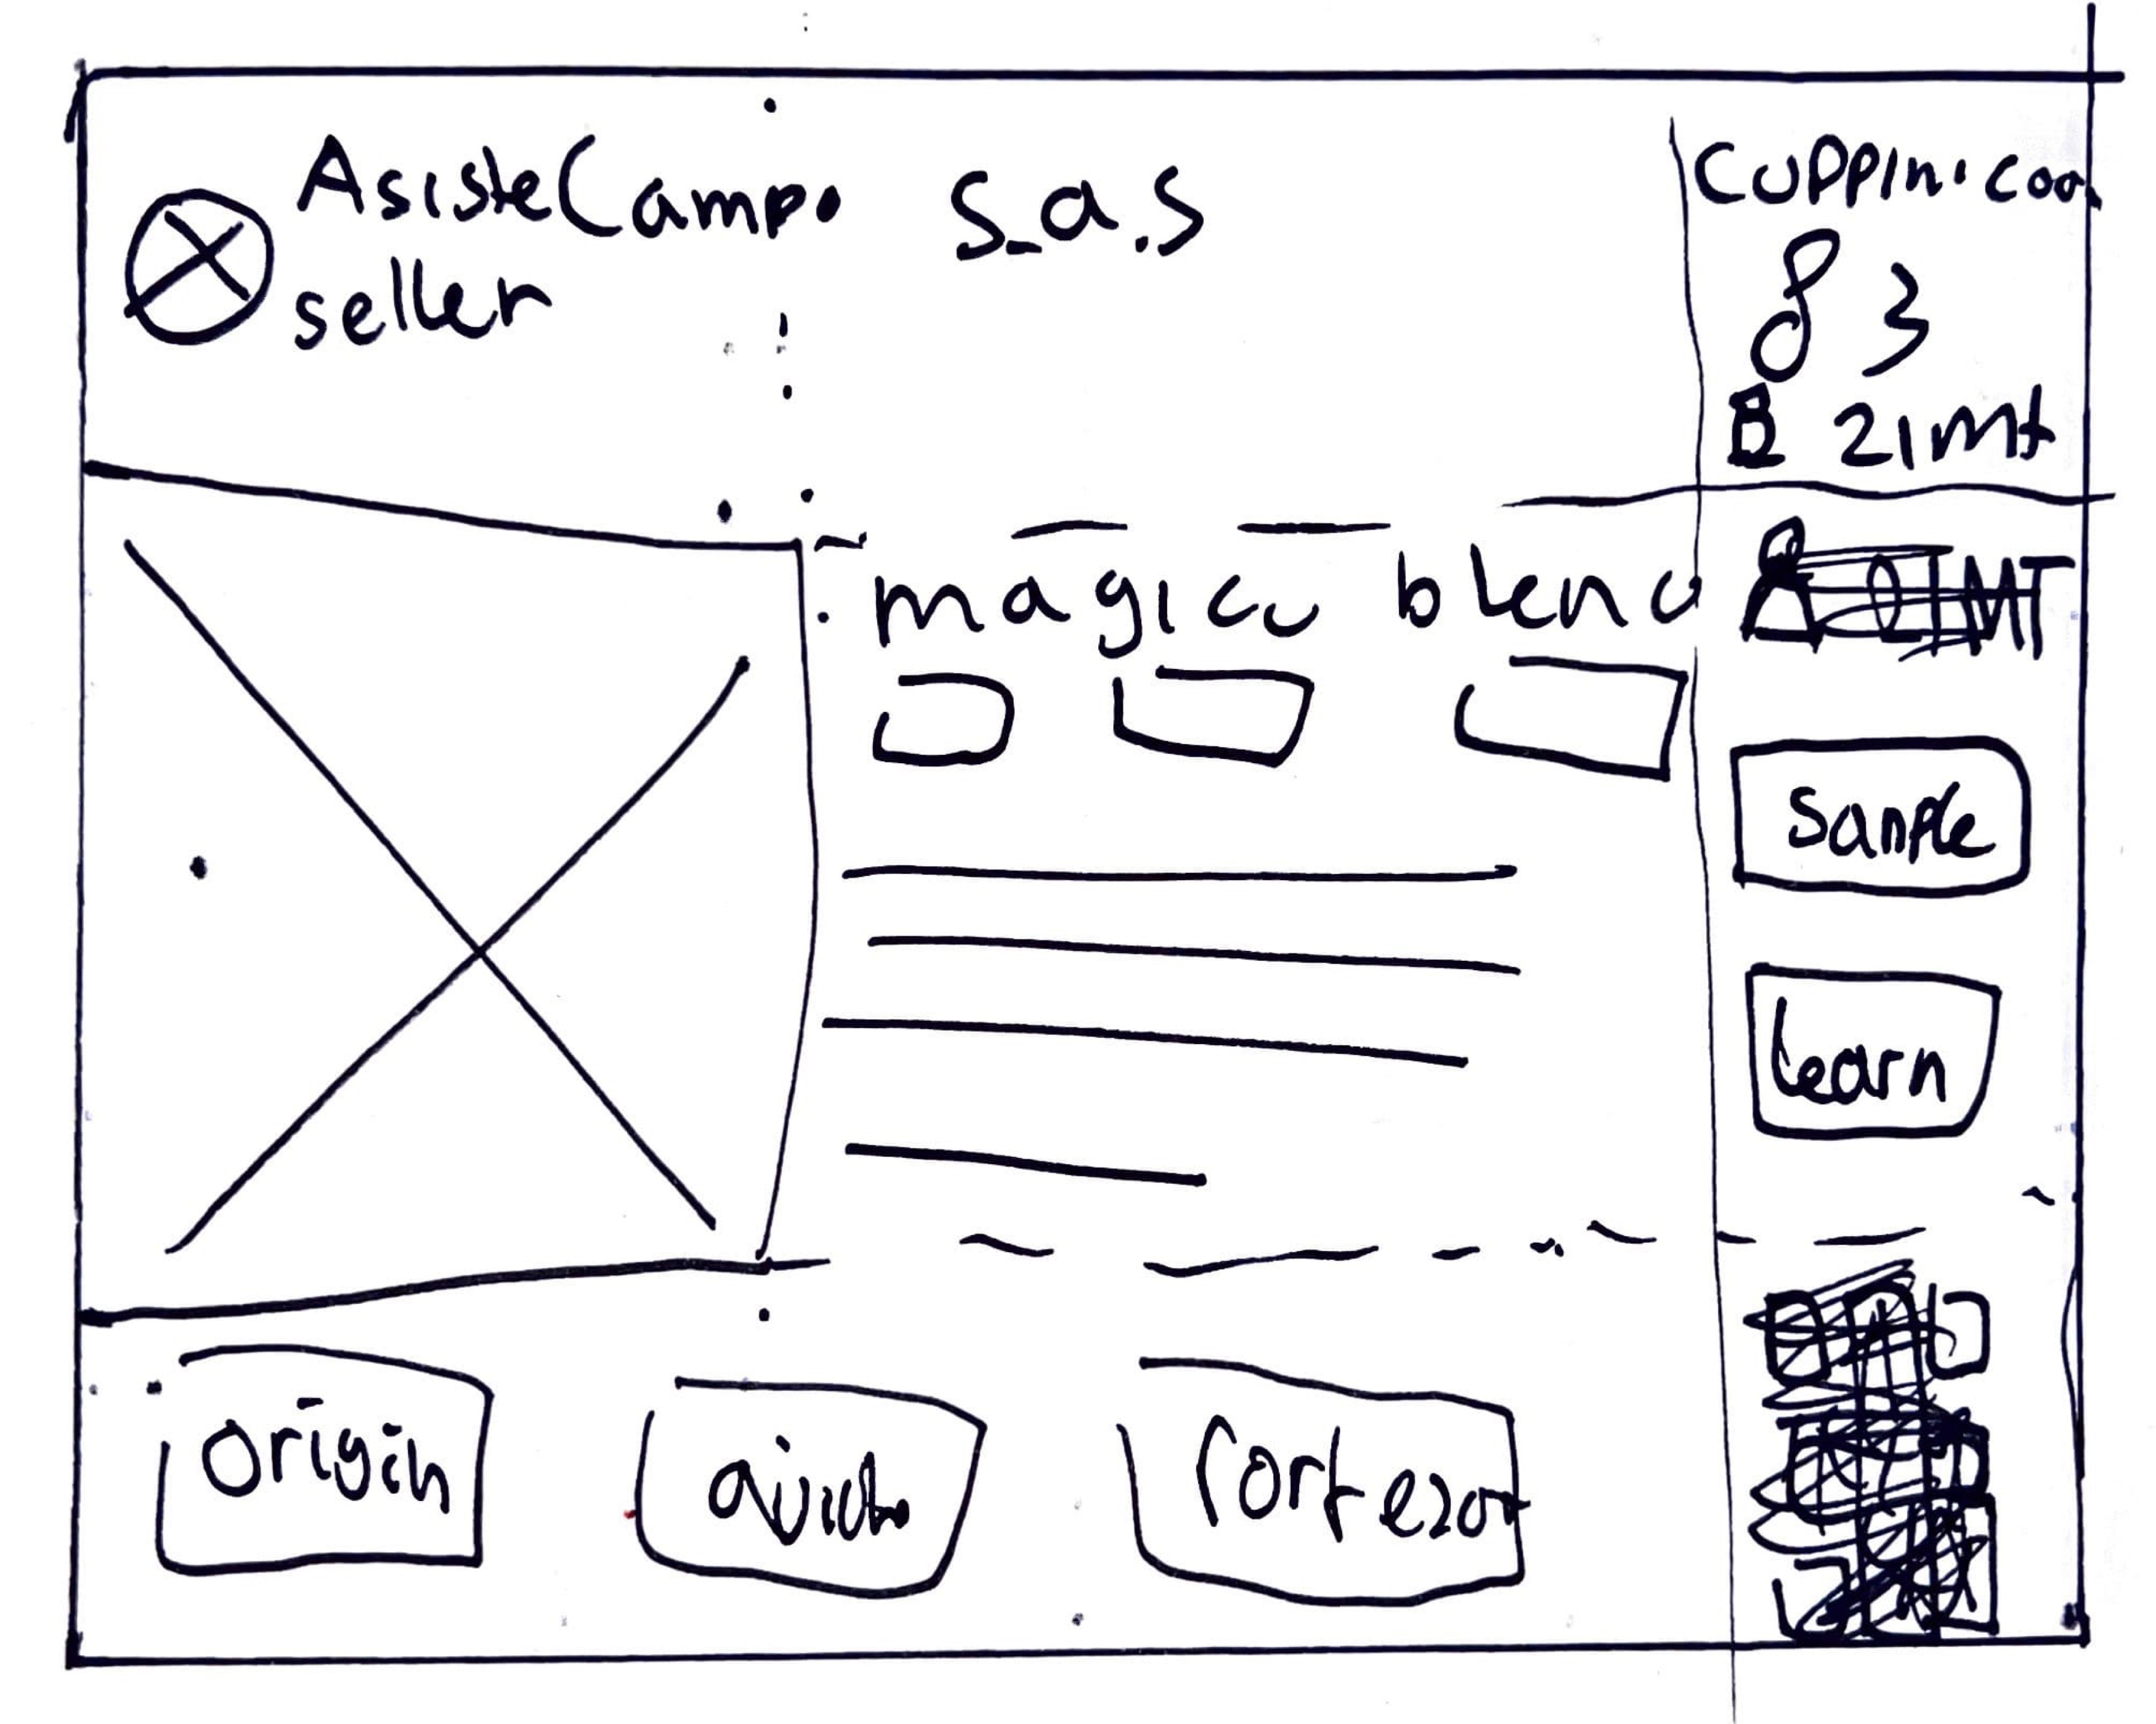 AsisteCampo S.a.S
seller
CUPPIN.coa
8 3
21Mt
magico blend
Sample
learn
origin
Cortezor